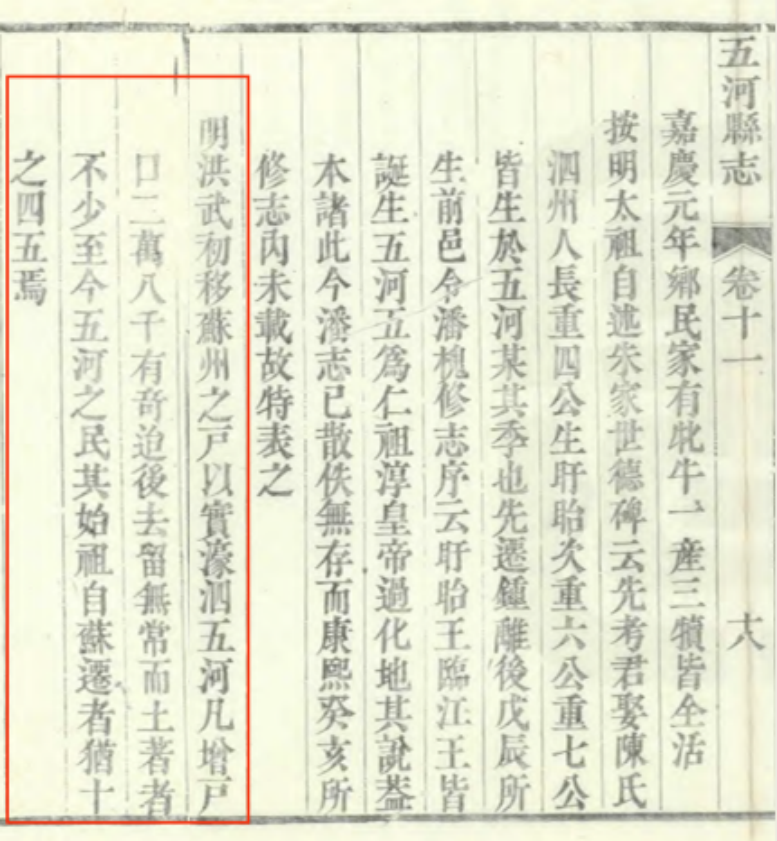 五河縣志 卷十一 十八
嘉慶元年鄉民家有牝牛一產三犢皆全活
按明太祖自述朱家世德碑云先考君娶陳氏
泗州人長重四公生盱眙次重六公重七公
皆生於五河某其季也先遷鍾離後戊辰所
生前邑令潘槐修志序云盱眙王臨江王皆
誕生五河五為仁祖淳皇帝過化地其說葢
本諸此今潘志已散佚無存而康熙癸亥所
修志內未載故特表之
明洪武初移蘇州之戶以實濠泗五河凡增戶
口二萬八千有奇迨後去留無常而土著者
不少至今五河之民其始祖自蘇遷者猶十
之四五焉